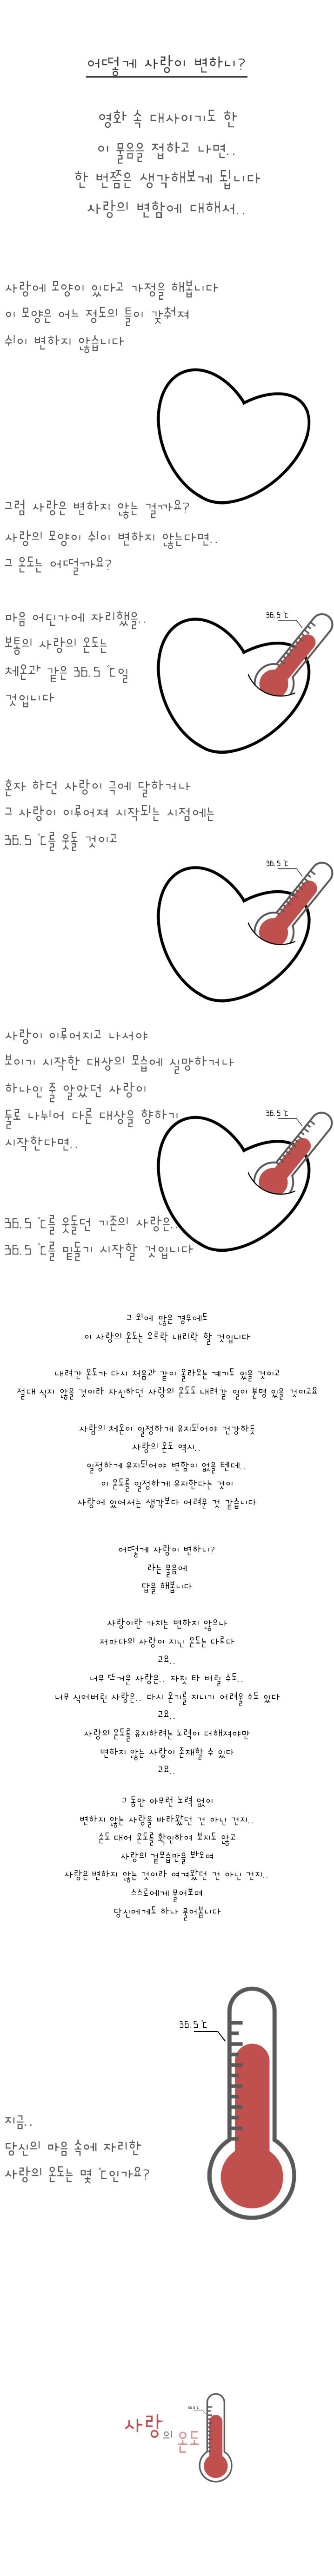 어떻게 사랑이 변하니?
영화 속 대사이기도 한
이 물음을 접하고 나면..
한 번쯤은 생각해보게 됩니다
사랑의 변함에 대해서..
사랑에 모양이 있다고 가정을 해봅니다
이 모양은 어느 정도의 틀이 갖춰져
쉬이 변하지 않습니다
그럼 사랑은 변하지 않는 걸까요?
사랑의 모양이 쉬이 변하지 않는다면..
그 온도는 어떨까요?
마음 어딘가에 자리했을..
보통의 사랑의 온도는
체온과 같은 36.5 ℃일
것입니다
36.5 ℃
혼자 하던 사랑이 극에 달하거나
그 사랑이 이루어져 시작되는 시점에는
36.5 ℃를 웃돌 것이고
36.5 ℃
사랑이 이루어지고 나서야
보이기 시작한 대상의 모습에 실망하거나
하나인 줄 알았던 사랑이
둘로 나뉘어 다른 대상을 향하기
시작한다면..
36.5 ℃
36.5 ℃를 웃돌던 기존의 사랑은..
36.5 ℃를 밑돌기 시작할 것입니다
그 외에 많은 경우에도
이 사랑의 온도는 오르락 내리락 할 것입니다
내려간 온도가 다시 처음과 같이 올라오는 계기도 있을 것이고
절대 식지 않을 것이라 자신하던 사랑의 온도도 내려갈 일이 분명 있을 것이고요
사람의 체온이 일정하게 유지되어야 건강하듯
사랑의 온도 역시..
일정하게 유지되어야 변함이 없을 텐데..
이 온도를 일정하게 유지한다는 것이
사랑에 있어서는 생각보다 어려운 것 같습니다
어떻게 사랑이 변하니?
라는 물음에
답을 해봅니다
사랑이란 가치는 변하지 않으나
저마다의 사랑이 지닌 온도는 다르다
고요..
너무 뜨거운 사랑은.. 자칫 타 버릴 수도..
너무 식어버린 사랑은.. 다시 온기를 지니기 어려울 수도 있다
고요..
사랑의 온도를 유지하려는 노력이 더해져야만
변하지 않는 사랑이 존재할 수 있다
고요..
그 동안 아무런 노력 없이
변하지 않는 사랑을 바라왔던 건 아닌 건지..
손도 대어 온도를 확인하여 보지도 않고
사랑의 겉모습만을 봐오며
사랑은 변하지 않는 것이라 여겨왔던 건 아닌 건지..
스스로에게 물어보며
당신에게도 하나 물어봅니다
36.5 ℃
지금..
당신의 마음 속에 자리한
사랑의 온도는 몇 ℃인가요?
사랑의 온도